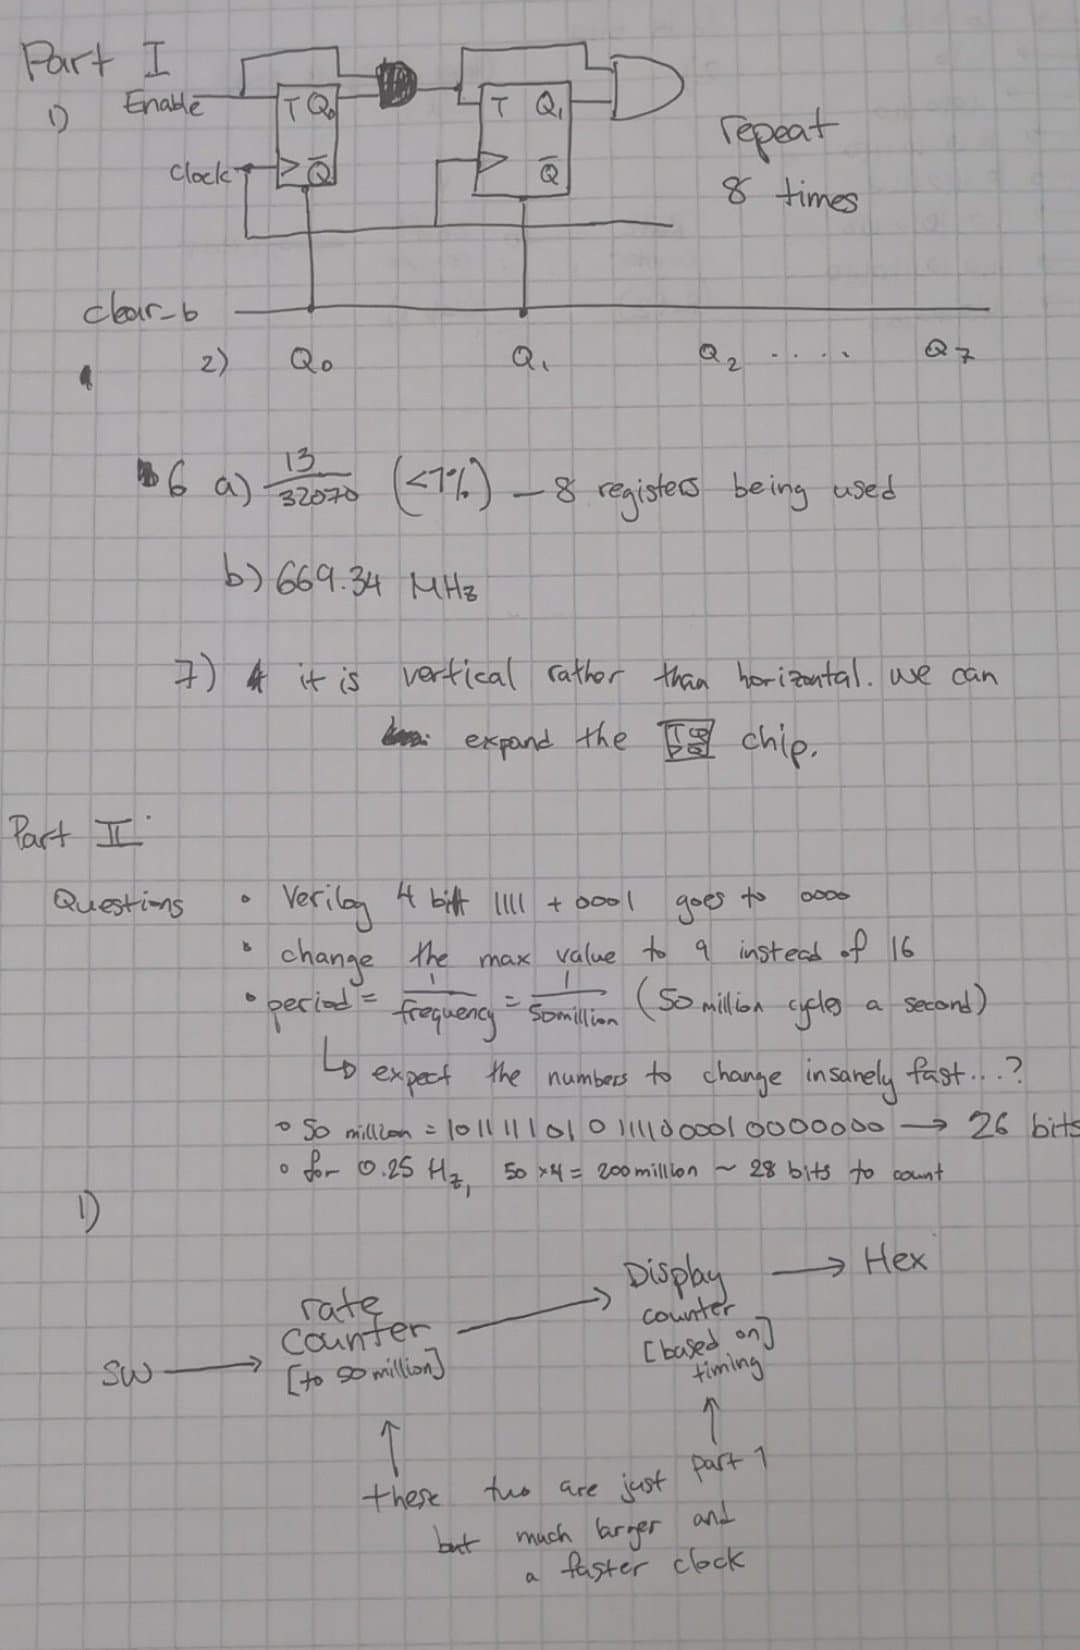 Part I
1) Enable T Q₀ T Q₁
clock Q̅ Q̅
repeat
8 times
clear_b
2) Q₀ Q₁ Q₂ ..... Q₇
6 a) 13/32070 (<1%) – 8 registers being used
b) 669.34 MHz
7) it is vertical rather than horizontal. we can
expand the T Q Q̅ chip.
Part II
Questions • Verilog 4 bit 1111 + 0001 goes to 0000
• change the max value to 9 instead of 16
• period = 1/frequency = 1/50million (50 million cycles a second)
↳ expect the numbers to change insanely fast...?
• 50 million = 10111110101111000010000000 → 26 bits
• for 0.25 Hz, 50 x4 = 200 million ~ 28 bits to count
1)
SW → rate counter [to 50 million] → Display counter [based on timing] → Hex
↑ ↑
these two are just part 1
but much larger and
a faster clock